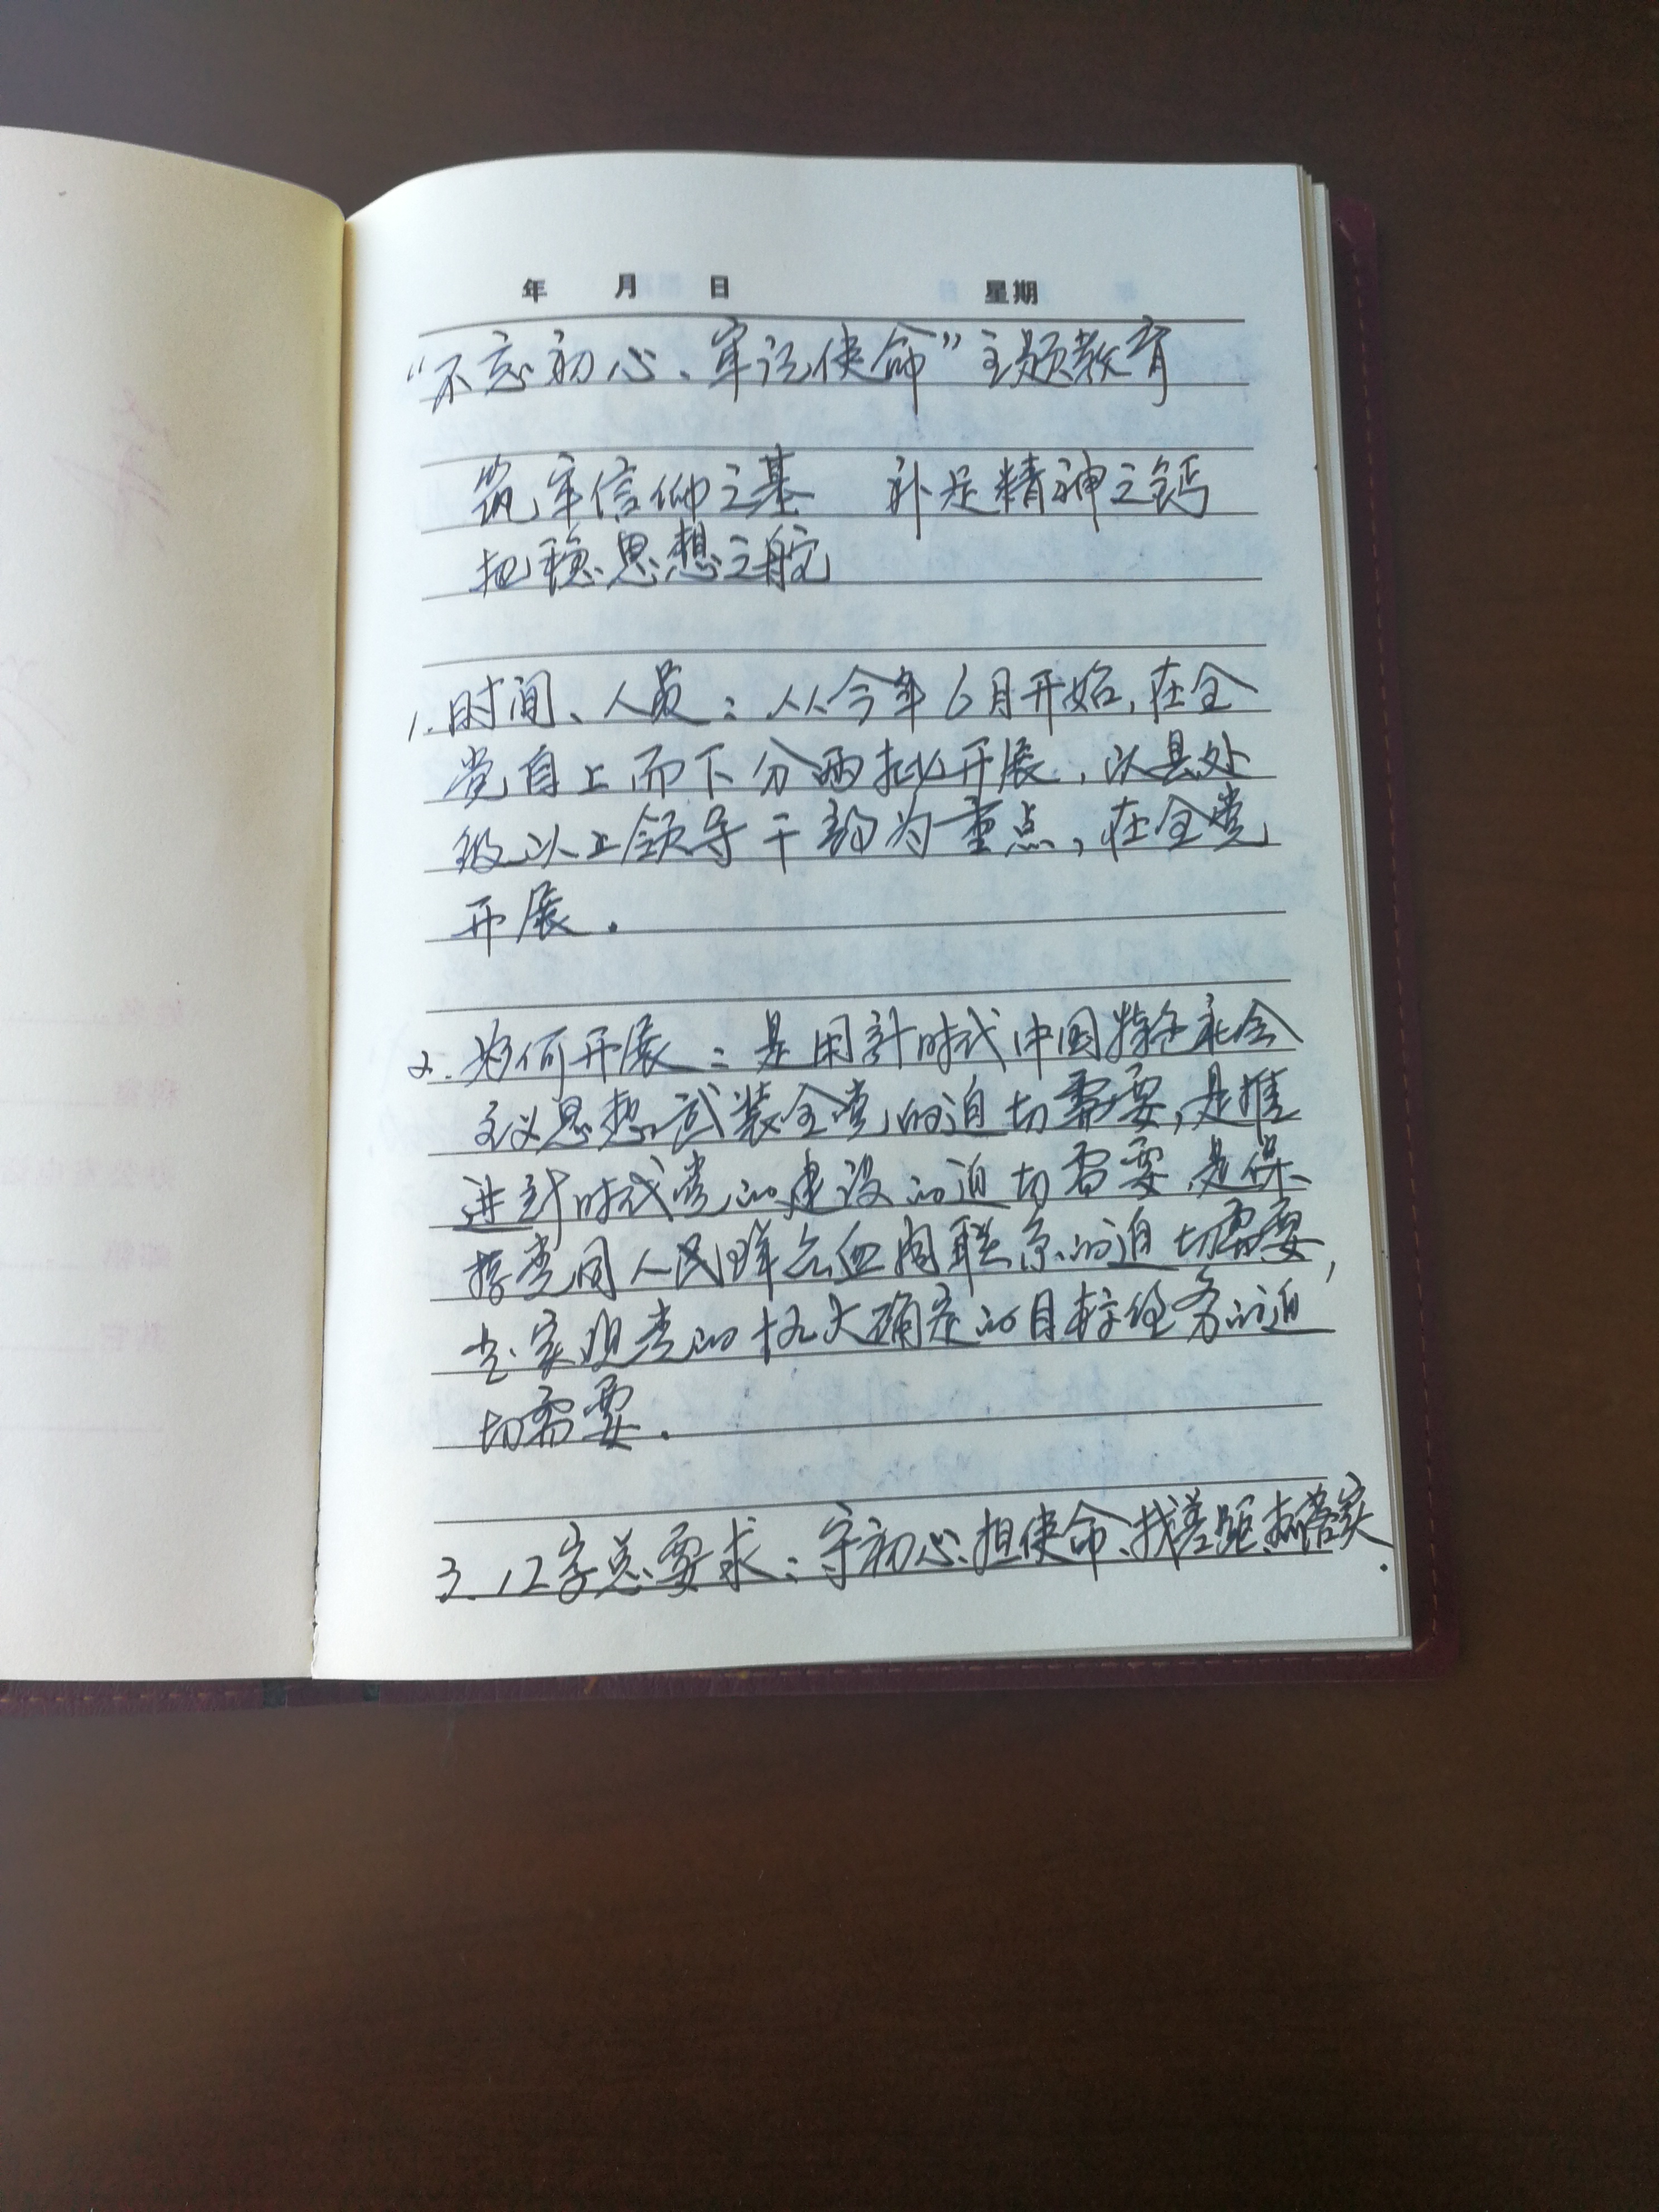 年 月 日 星期
“不忘初心、牢记使命”主题教育
筑牢信仰之基 补足精神之钙
把稳思想之舵
1. 时间、人员：从今年6月开始，在全
党自上而下分两批开展，以县处
级以上领导干部为重点，在全党
开展.
2. 为何开展：是用新时代中国特色社会
主义思想武装全党的迫切需要，是推
进新时代党的建设的迫切需要，是保
持党同人民群众血肉联系的迫切需要，
是实现党的十九大确定的目标任务的迫
切需要.
3. 12字总要求：守初心、担使命、找差距、抓落实.